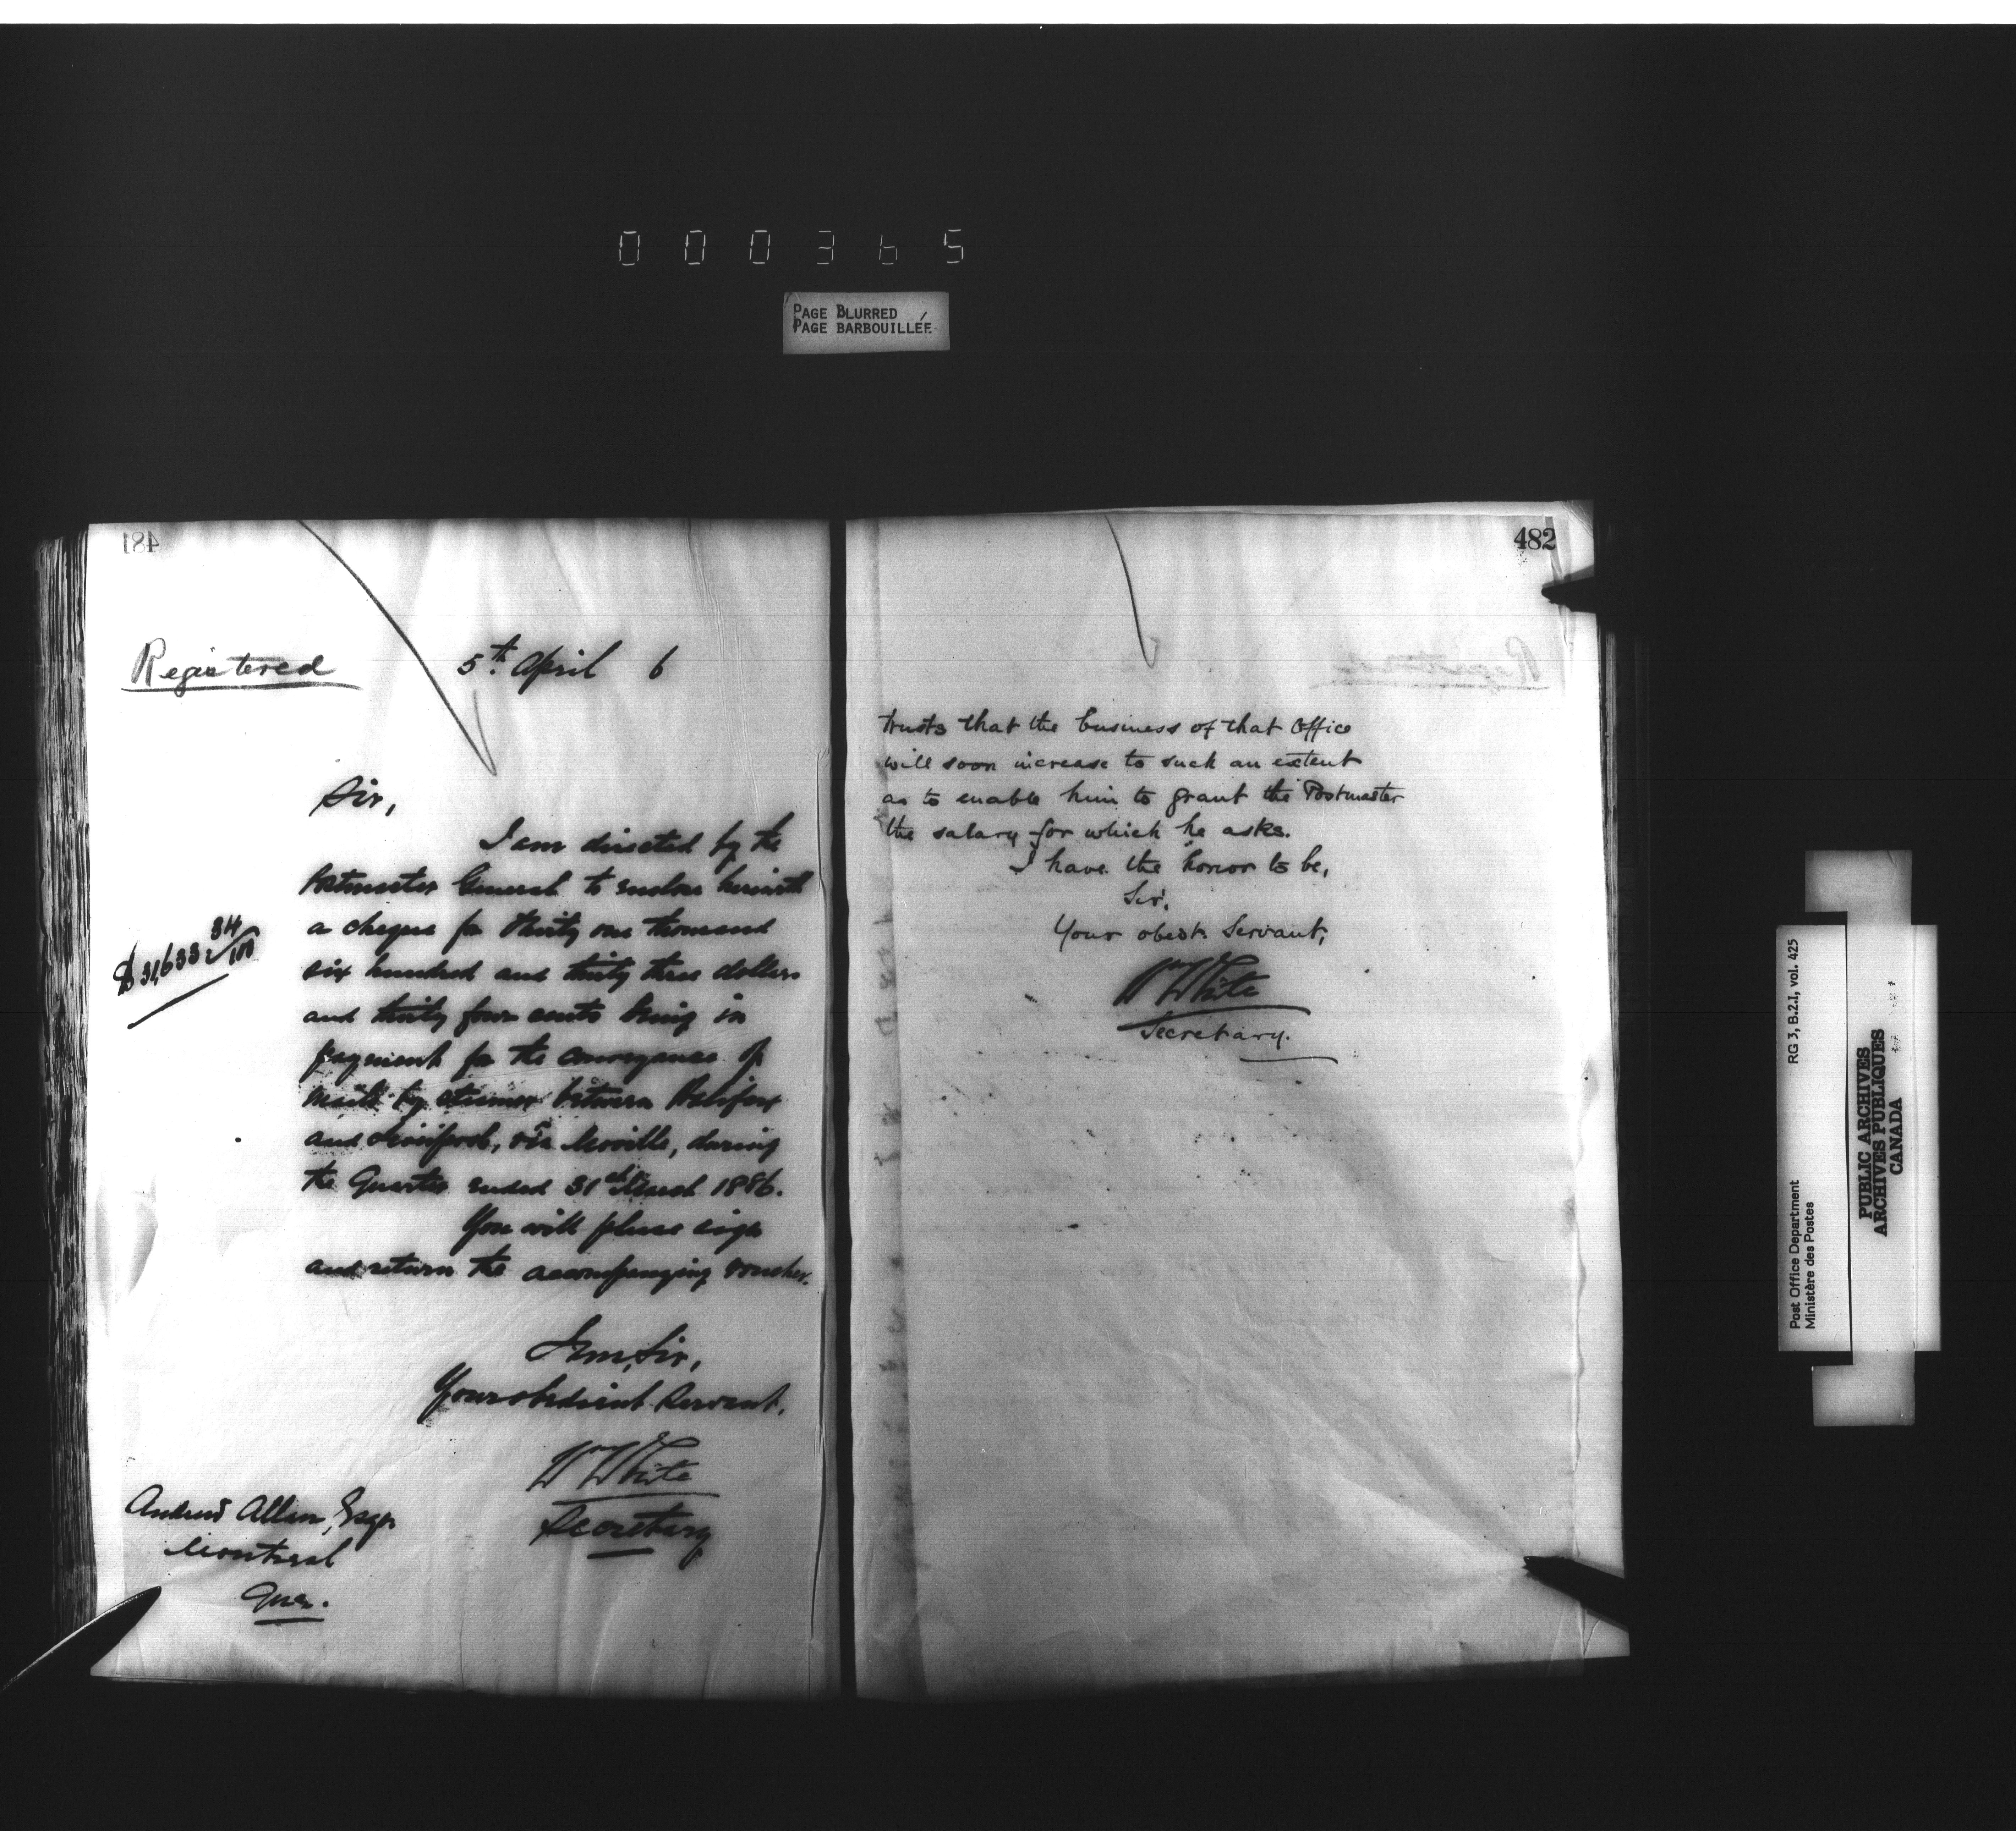 000365
PAGE BLURRED
PAGE BARBOUILLÉE
481
Registered
5th April 6
Sir,
I am directed by the
Postmaster General to enclose herewith
a cheque for thirty one thousand
$31,633 34/100
six hundred and thirty three dollars
and thirty four cents being in
payment for the conveyance of
mails by steamer between Halifax
and Liverpool, via Moville, during
the Quarter ended 31st March 1886.
You will please sign
and return the accompanying voucher.
I am, Sir,
Your obedient Servant,
Wm White
Secretary
Andrew Allan, Esqr
Montreal
Que.
482
Registered
trusts that the business of that Office
will soon increase to such an extent
as to enable him to grant the Postmaster
the salary for which he asks.
I have the honor to be,
Sir,
Your obedt. Servant,
Wm White
Secretary.
Post Office Department
Ministère des Postes
RG 3, B.2.I, vol. 425
PUBLIC ARCHIVES
ARCHIVES PUBLIQUES
CANADA